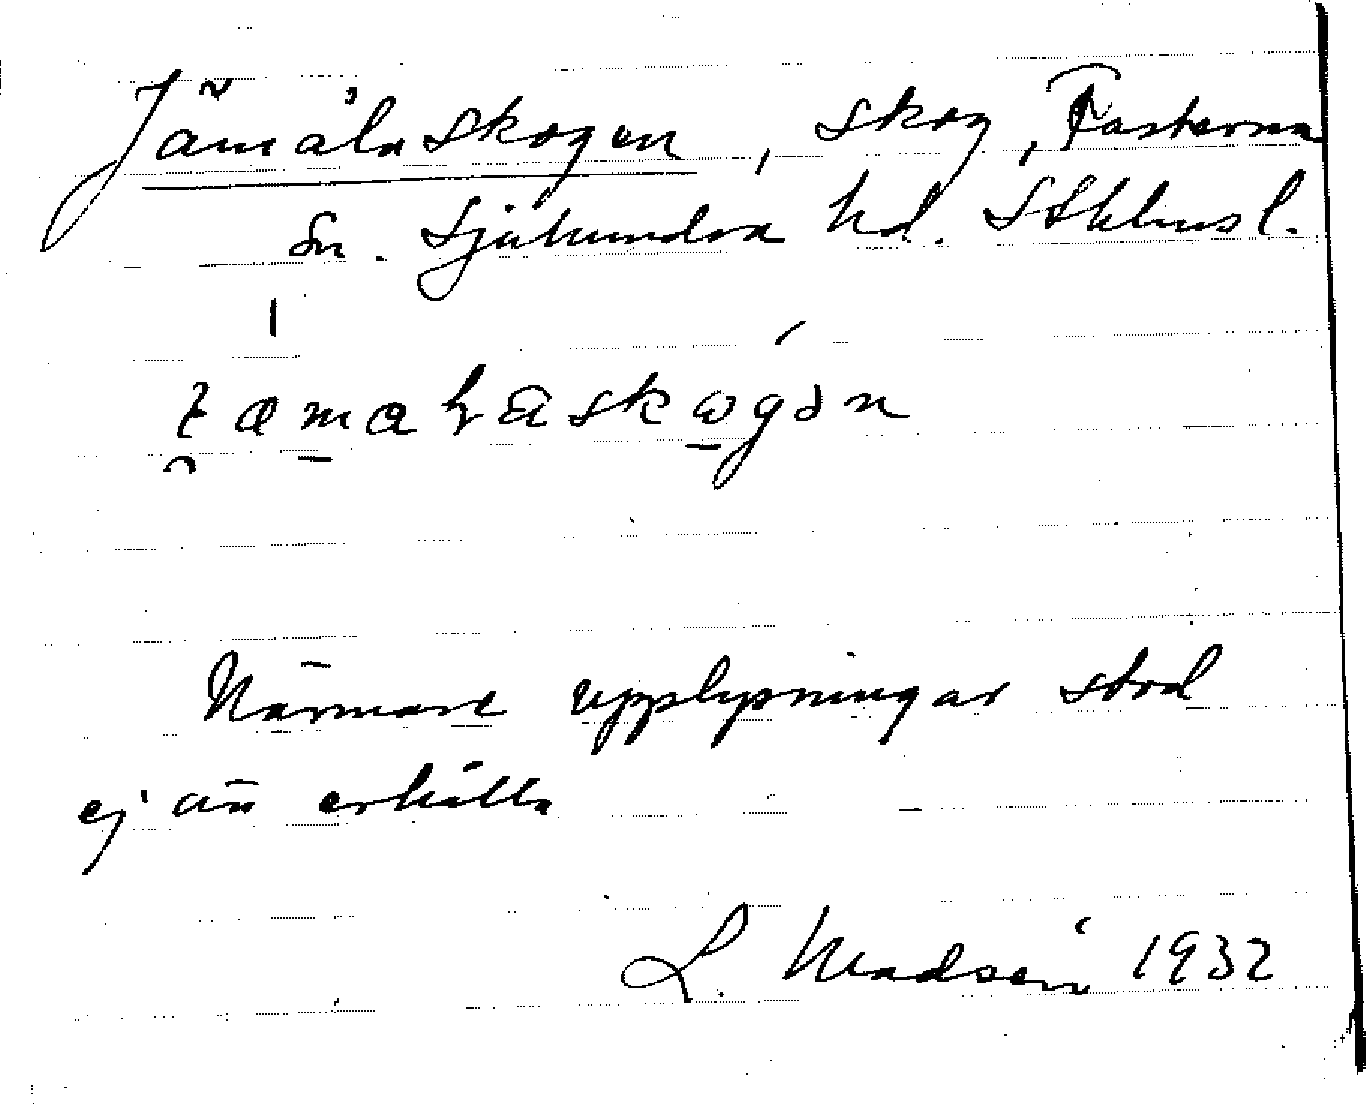 Jämålaskogen, skog, Fasterna
sn. Sjuhundra hd. Stkhmsl.
Närmare upplysningar stod
ej att erhålla
L. Madsén 1932